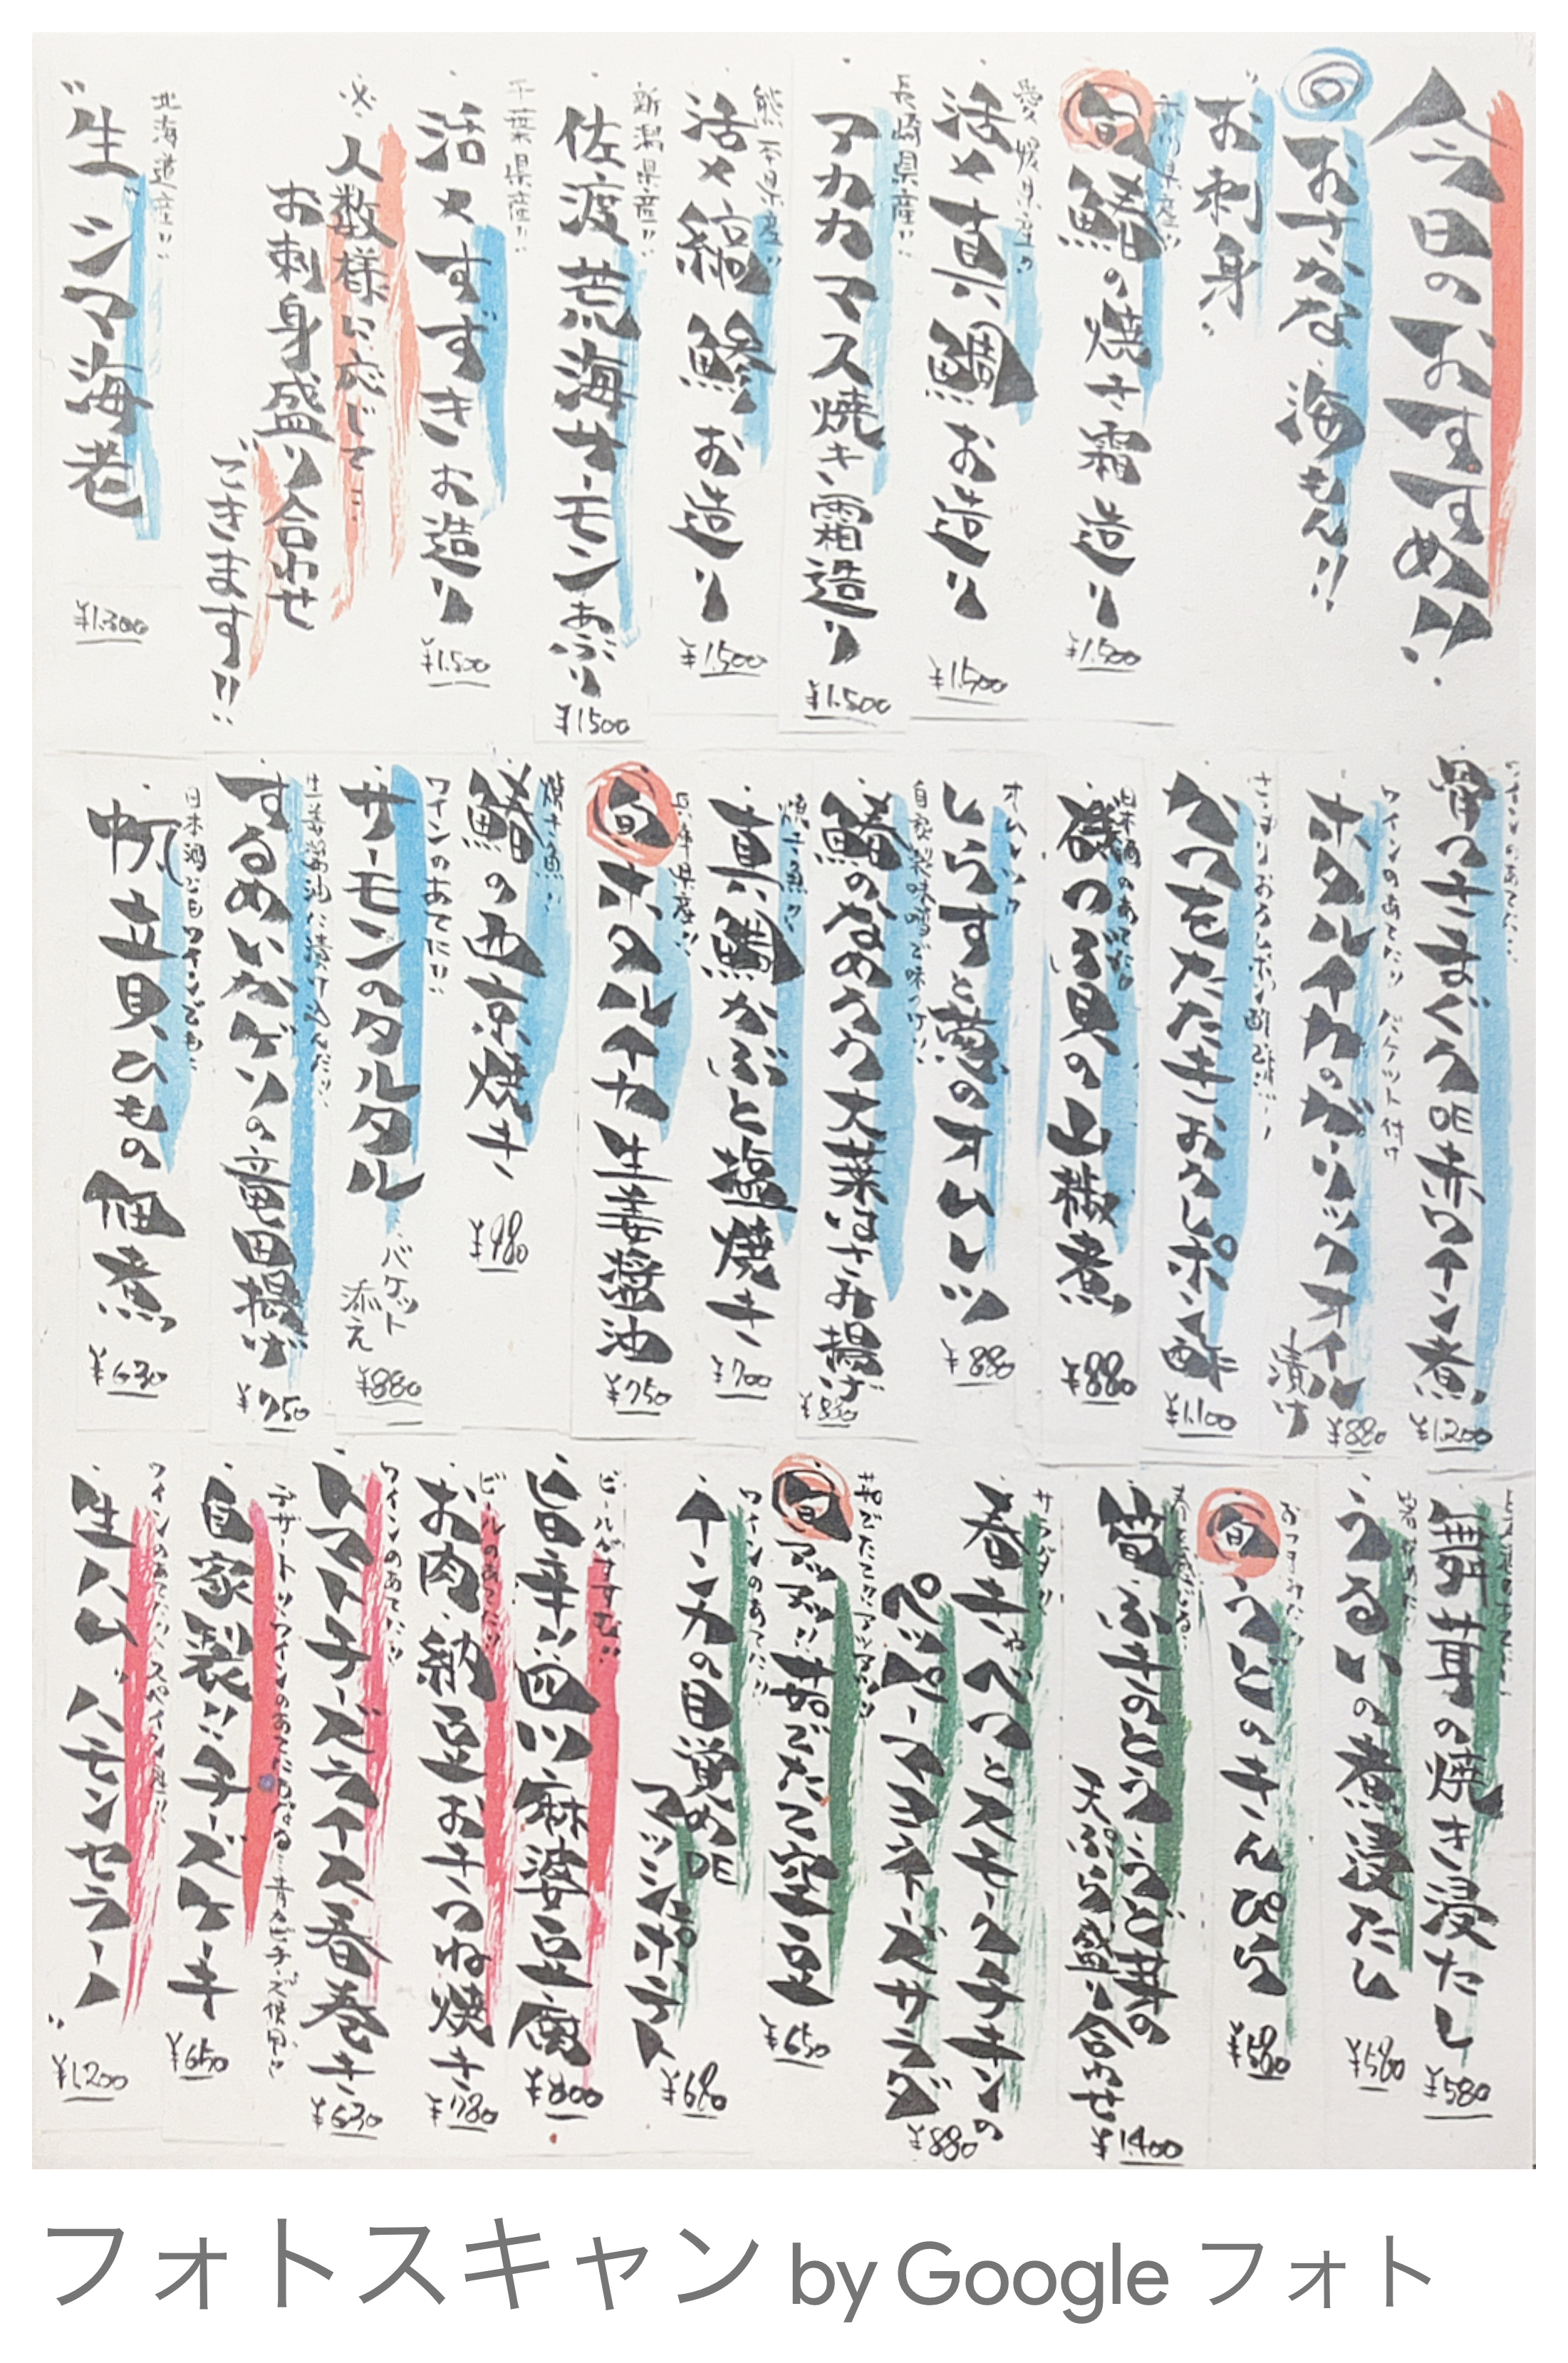 今日のおすすめ!!
おさかな、海もん!!
"お刺身"
香川県産!!
旬 鰆の焼き霜造り
¥1.500
愛媛県産!!
活〆真鯛お造り
¥1.500
長崎県産!!
アカカマス焼き霜造り
¥1.500
熊本県産!!
活〆縞鯵お造り
¥1.500
新潟県産!!
佐渡荒海サーモンあぶり
¥1500
千葉県産!!
活〆すずきお造り
¥1.500
※人数様に応じて…
お刺身盛り合わせ
できます!!
北海道産!!
"生"シマ海老
¥1.300
ワインのあてに!!
骨つきまぐろDE赤ワイン煮
¥1.200
ワインのあてに!! バケット付け
ホタルイカのガーリックオイル
漬け
¥880
さっぱりおろしポン酢
かつをたたきおろしポン酢
¥1.100
日本酒のあてに!!
磯つぶ貝の山椒煮
¥880
オムレツ!!
しらすと葱のオムレツ
¥880
自家製味噌で味つけ!!
鰆のなめろう大葉はさみ揚げ
¥830
焼き魚!!
真鯛かぶと塩焼き
¥700
兵庫県産!!
旬 ホタルイカ生姜醤油
¥750
焼き魚!!
鰆の西京焼き
¥980
ワインのあてに!!
サーモンのタルタル
バケット
添え
¥880
生姜醤油に漬け込んだ!!
するめいかゲソの竜田揚げ
¥750
日本酒にもワインでも!!
帆立貝ひもの佃煮
¥630
舞茸の焼き浸たし
¥580
うるいの煮浸たし
¥580
おつまみに!!
旬 うどのきんぴら
¥580
筍ふきのとううど芽の
天ぷら盛り合わせ
¥1.400
サラダ!!
春きゃべつとスモークチキンの
ペッパーマヨネーズサラダ
¥880
旬 アツアツ!!茹でたて空豆
¥650
ワインのあてに!!
インカの目覚めDE
マッシュポテト
¥680
ビールがすすむ!!
旨辛!!四川麻婆豆腐
¥800
ビールのあてに!!
お肉納豆おきつね焼き
¥780
ワインのあてに!!
トマトチーズライス春巻き
¥630
デザート!!ワインのあてにもなる…青カビチーズ使用!!
自家製!!チーズケーキ
¥650
ワインのあてに!!スペイン産!!
"生ハム"ハモンセラーノ"
¥1.200
フォトスキャン by Google フォト